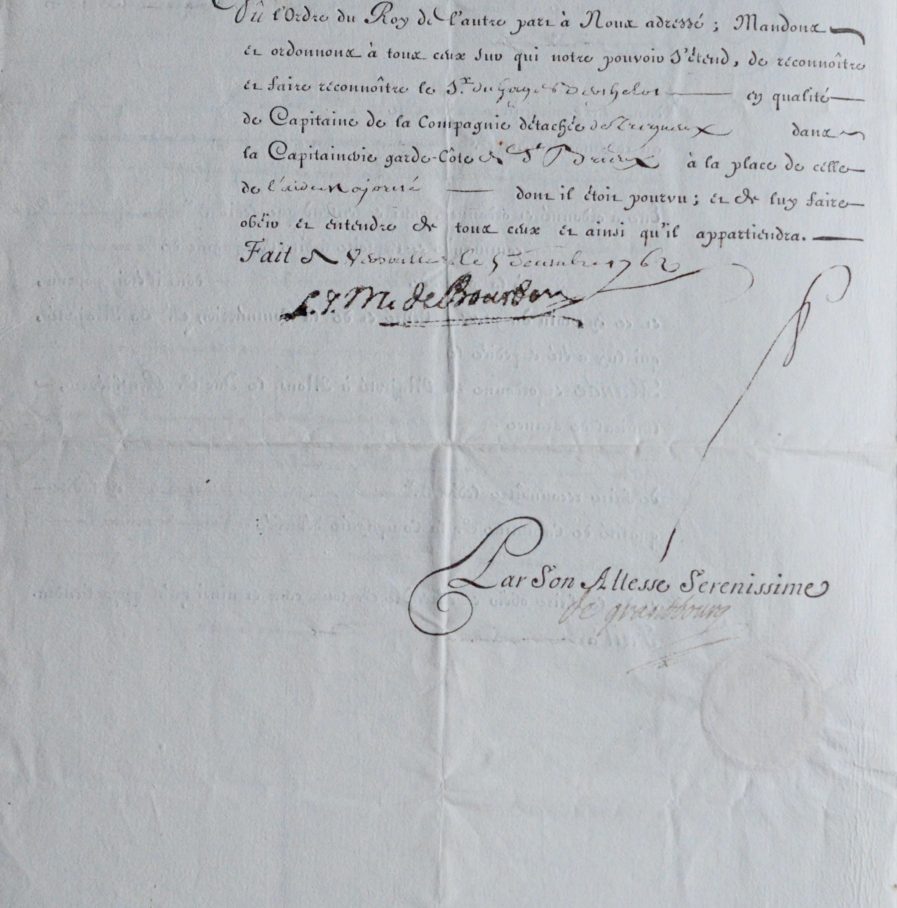 Vû l'Ordre du Roy de l'autre part à Nous adressé ; Mandons
et ordonnons à tous ceux sur qui notre pouvoir s'étend, de reconnoître
et faire reconnoître le Sr. du en qualité
de Capitaine de la Compagnie détachée de dans
la Capitainerie garde-Côte de St Brieux à la place de celle
de l'aide Majorité dont il étoit pourvu ; et de luy faire
obéir et entendre de tous ceux et ainsi qu'il appartiendra.
Fait à Versailles le décembre 1762
L. J. M. de Bourbon
Par Son Altesse Serenissime
de grandbourg